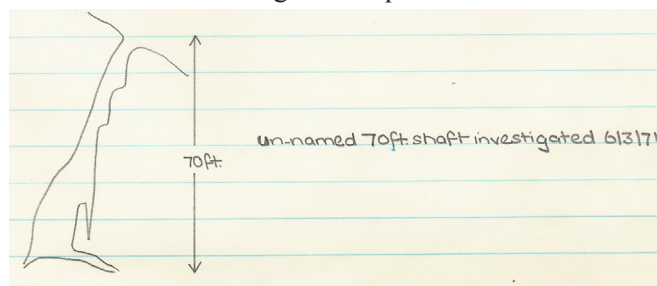 70ft.
un-named 70ft. shaft investigated 6/3/71